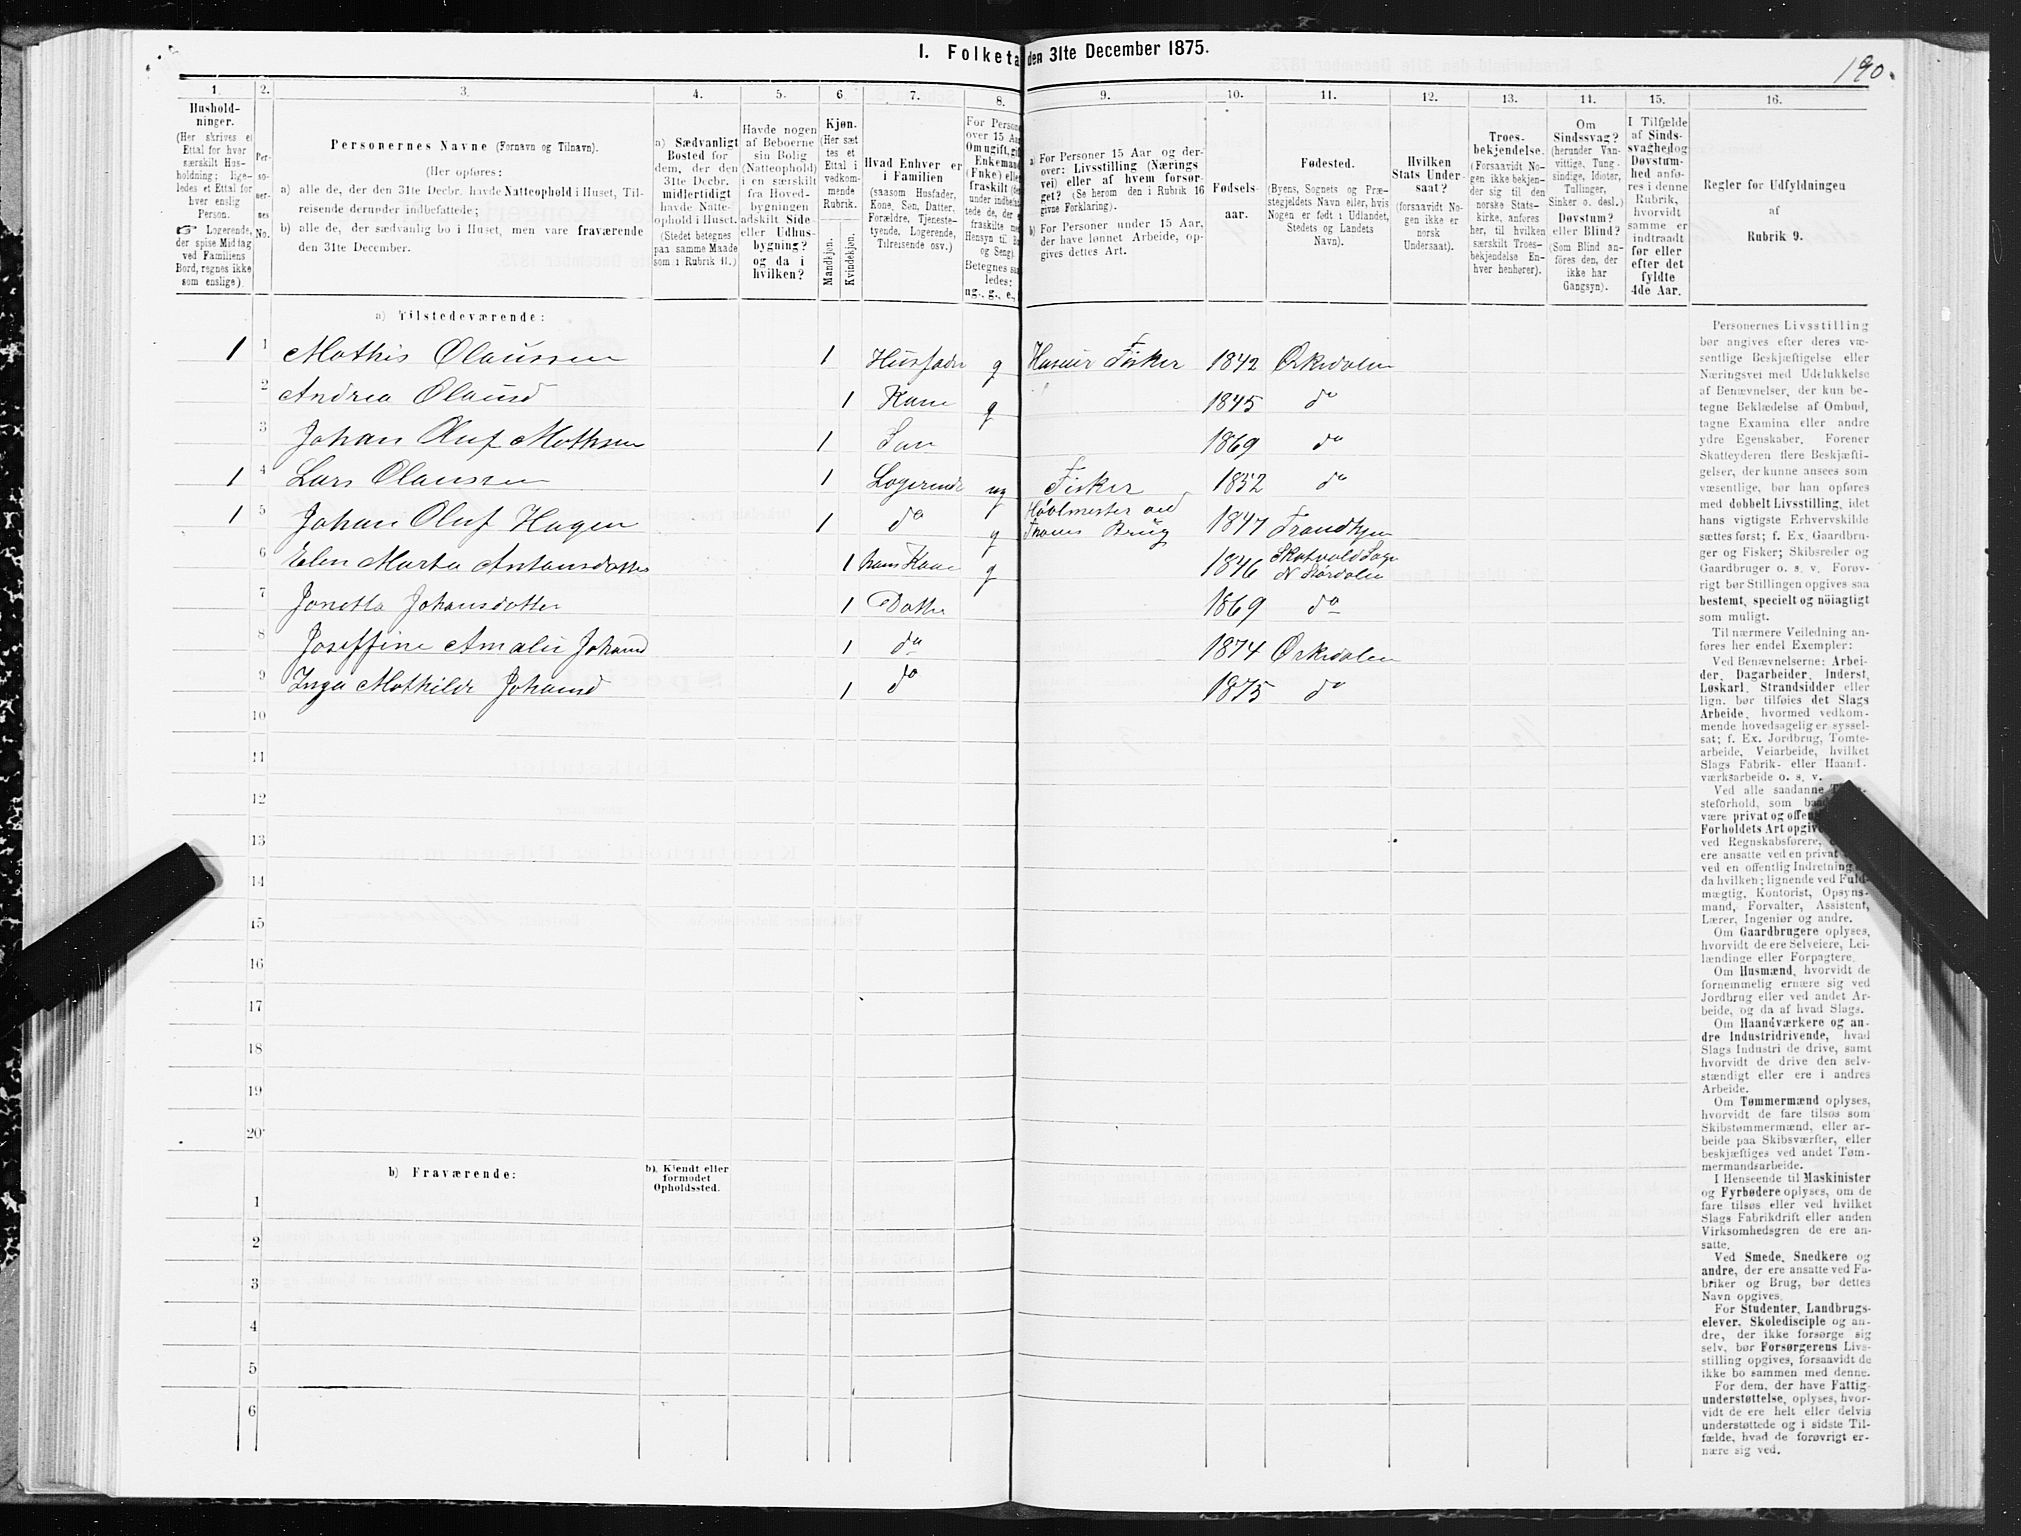 I. Folketa den 31te December 1875.
190.
1. 2. 3. 4. 5. 6. 7. 8. 9. 10. 11. 12. 13. 14. 15. 16.
Hushold-
ninger.
(Her skrives et
Ettal for hver
særskilt Hus-
holdning; lige-
ledes et Ettal for
hver enslig
Person.
☞ Logerende,
der spise Middag
ved Familiens
Bord, regnes ikke
som enslige).
Per-
so-
ner-
nes
No.
Personernes Navne (Fornavn og Tilnavn).
(Her opføres:
a) alle de, der den 31te Decbr. havde Natteophold i Huset, Til-
reisende derunder indbefattede;
b) alle de, der sædvanlig bo i Huset, men vare fraværende
den 31te December.
a) Sædvanligt
Bosted for
dem, der den
31te Decbr.
midlertidigt
havde Natte-
ophold i Huset.
(Stedet betegnes
paa samme Maade
som i Rubrik 11.)
Havde nogen
af Beboerne
sin Bolig
(Natteophold)
i en særskilt
fra Hoved-
bygningen
adskilt Side-
eller Udhus-
bygning?
og da i
hvilken?
Kjøn.
(Her sæt
tes et
Ettal i
vedkom-
mende
Rubrik.
Mandkjøn.
Kvindekjøn.
Hvad Enhver er
i Familien
(saasom Husfader,
Kone, Søn, Datter,
Forældre, Tjeneste-
tyende, Logerende,
Tilreisende osv.)
For Person
over 15 Aar
Om ugift, gift,
Enkemand
(Enke) eller
fraskilt
Betegnes saa
ledes:
ug., g., e.,
a) For Personer 15 Aar og der-
over: Livsstilling (Nærings
vei) eller af hvem forsør-
get? (Se herom den i Rubrik 16
givne Forklaring).
b) For Personer under 15 Aar,
der have lønnet Arbeide, op-
gives dettes Art.
Fødsels-
aar.
Fødested.
(Byens, Sognets og Præ-
stegjeldets Navn eller, hvis
Nogen er født i Udlandet,
Stedets og Landets
Navn).
Hvilken
Stats Under-
saat?
(forsaavidt No-
gen ikke er
norsk
Undersaat).
Troes-
bekjendelse.
(Forsaavidt No-
gen ikke bekjen-
der sig til den
norske Stats-
kirke, anføres
her, til hvilken
særskilt Troes-
bekjendelse En-
hver henhører).
Om
Sindssvag?
(herunder Van-
vittige, Tung-
sindige, Idioter,
Tullinger,
Sinker o. desl.)
Døvstum?
eller Blind?
(Som Blind an-
føres den, der
ikke har
Gangsyn).
I Tilfælde
af Sinds-
svaghed og
Døvstum-
hed anfø-
res i denne
Rubrik,
hvorvidt
samme er
indtraadt
før eller
efter det
fyldte
4de Aar.
Regler for Udfyldningen
af
Rubrik 9.
a) Tilstedeværende:
1 1 Mathis Olaussen 1 Husfader g Fisker 1842 Orkedalen
2 Andrea Olausd 1 Kone g 1845 do
3 Johan Oluf Mathsen 1 Søn 1869 do
1 4 Lars Olaussen 1 Logerende ug Fisker 1852 do
1 5 Johan Oluf Hagen 1 do g Brug 1847 Trondhjem
6 Elen Marta Antonsdatter 1 hans Kone g 1846 N Størdalen
7 Jonetta Johansdatter 1 Datter 1869 do
8 Joseffine Amalie Johansd 1 do 1874 Orkedalen
9 Inga Mathilde Johansd 1 do 1875 do
10
11
12
13
14
15
16
17
18
19
20
b) Fraværende:
b). Kjendt eller
formodet
Opholdssted.
1
2
3
4
5
6
Personernes Livsstilling
bør angives efter deres væ-
sentlige Beskjæftigelse eller
Næringsvei med Udelukkelse
af Benævnelser, der kun be-
tegne Beklædelse af Ombud,
tagne Examina eller andre
ydre Egenskaber. Forener
Skatteyderen flere Beskjæfti-
gelser, der kunne ansees som
væsentlige, bør han opføres
med dobbelt Livsstilling, idet
hans vigtigste Erhvervskilde
sættes først; f. Ex. Gaardbru-
ger og Fisker; Skibsreder og
Gaardbruger o. s. v. Forøv-
rigt bør Stillingen opgives saa
bestemt, specielt og nöiagtigt
som muligt.
Til nærmere Veiledning an-
føres her endel Exempler:
Ved Benævnelserne: Arbei-
der, Dagarbeider, Inderst,
Løskarl, Strandsidder eller
lign. bør tilføies det Slags
Arbeide, hvormed vedkom-
mende hovedsagelig er syssel-
sat; f. Ex. Jordbrug, Tomte-
arbeide, Veiarbeide, hvilket
Slags Fabrik- eller Haand-
værksarbeide o. s. v.
Ved alle saadanne
steforhold, som
være privat og
Forholdets Art
ved Regnskabsførere,
ere ansatte ved en privat
ved en offentlig Indretning
da hvilken; lignende ved Fuld-
mægtig, Kontorist, Opsyns-
mand, Forvalter, Assistent,
Lærer, Ingeniør og andre.
Om Gaardbrugere oplyses,
hvorvidt de ere Selveiere, Lei-
lændinge eller Forpagtere.
Om Husmænd, hvorvidt de
fornemmelig ernære sig ved
Jordbrug eller ved andet Ar-
beide, og da af hvad Slags.
Om Haandværkere og an-
dre Industridrivende, hvad
Slags Industri de drive, samt
hvorvidt de drive den selv-
stændigt eller ere i andres
Arbeide.
Om Tømmermænd oplyses,
hvorvidt de fare tilsøs som
Skibstømmermænd, eller ar-
beide paa Skibsværfter, eller
beskjæftiges ved andet Tøm-
mermandsarbeide.
I Henseende til Maskinister
og Fyrbødere oplyses, om de
fare tilsøs eller ved hvilket
Slags Fabrikdrift eller anden
Virksomhedsgren de ere an-
satte.
Ved Smede, Snedkere og
andre, der ere ansatte ved Fa-
briker og Brug, bør dettes
Navn opgives.
For Studenter, Landbrugs-
elever, Skoledisciple og an-
dre, der ikke forsørge sig
selv, bør Forsørgerens Livs-
stilling opgives, forsaavidt de
ikke bo sammen med denne.
For dem, der have Fattig-
understøttelse, oplyses, hvor-
vidt de ere helt eller delvis
understøttede og i sidste Til-
fælde, hvad de forøvrigt er-
nære sig ved.